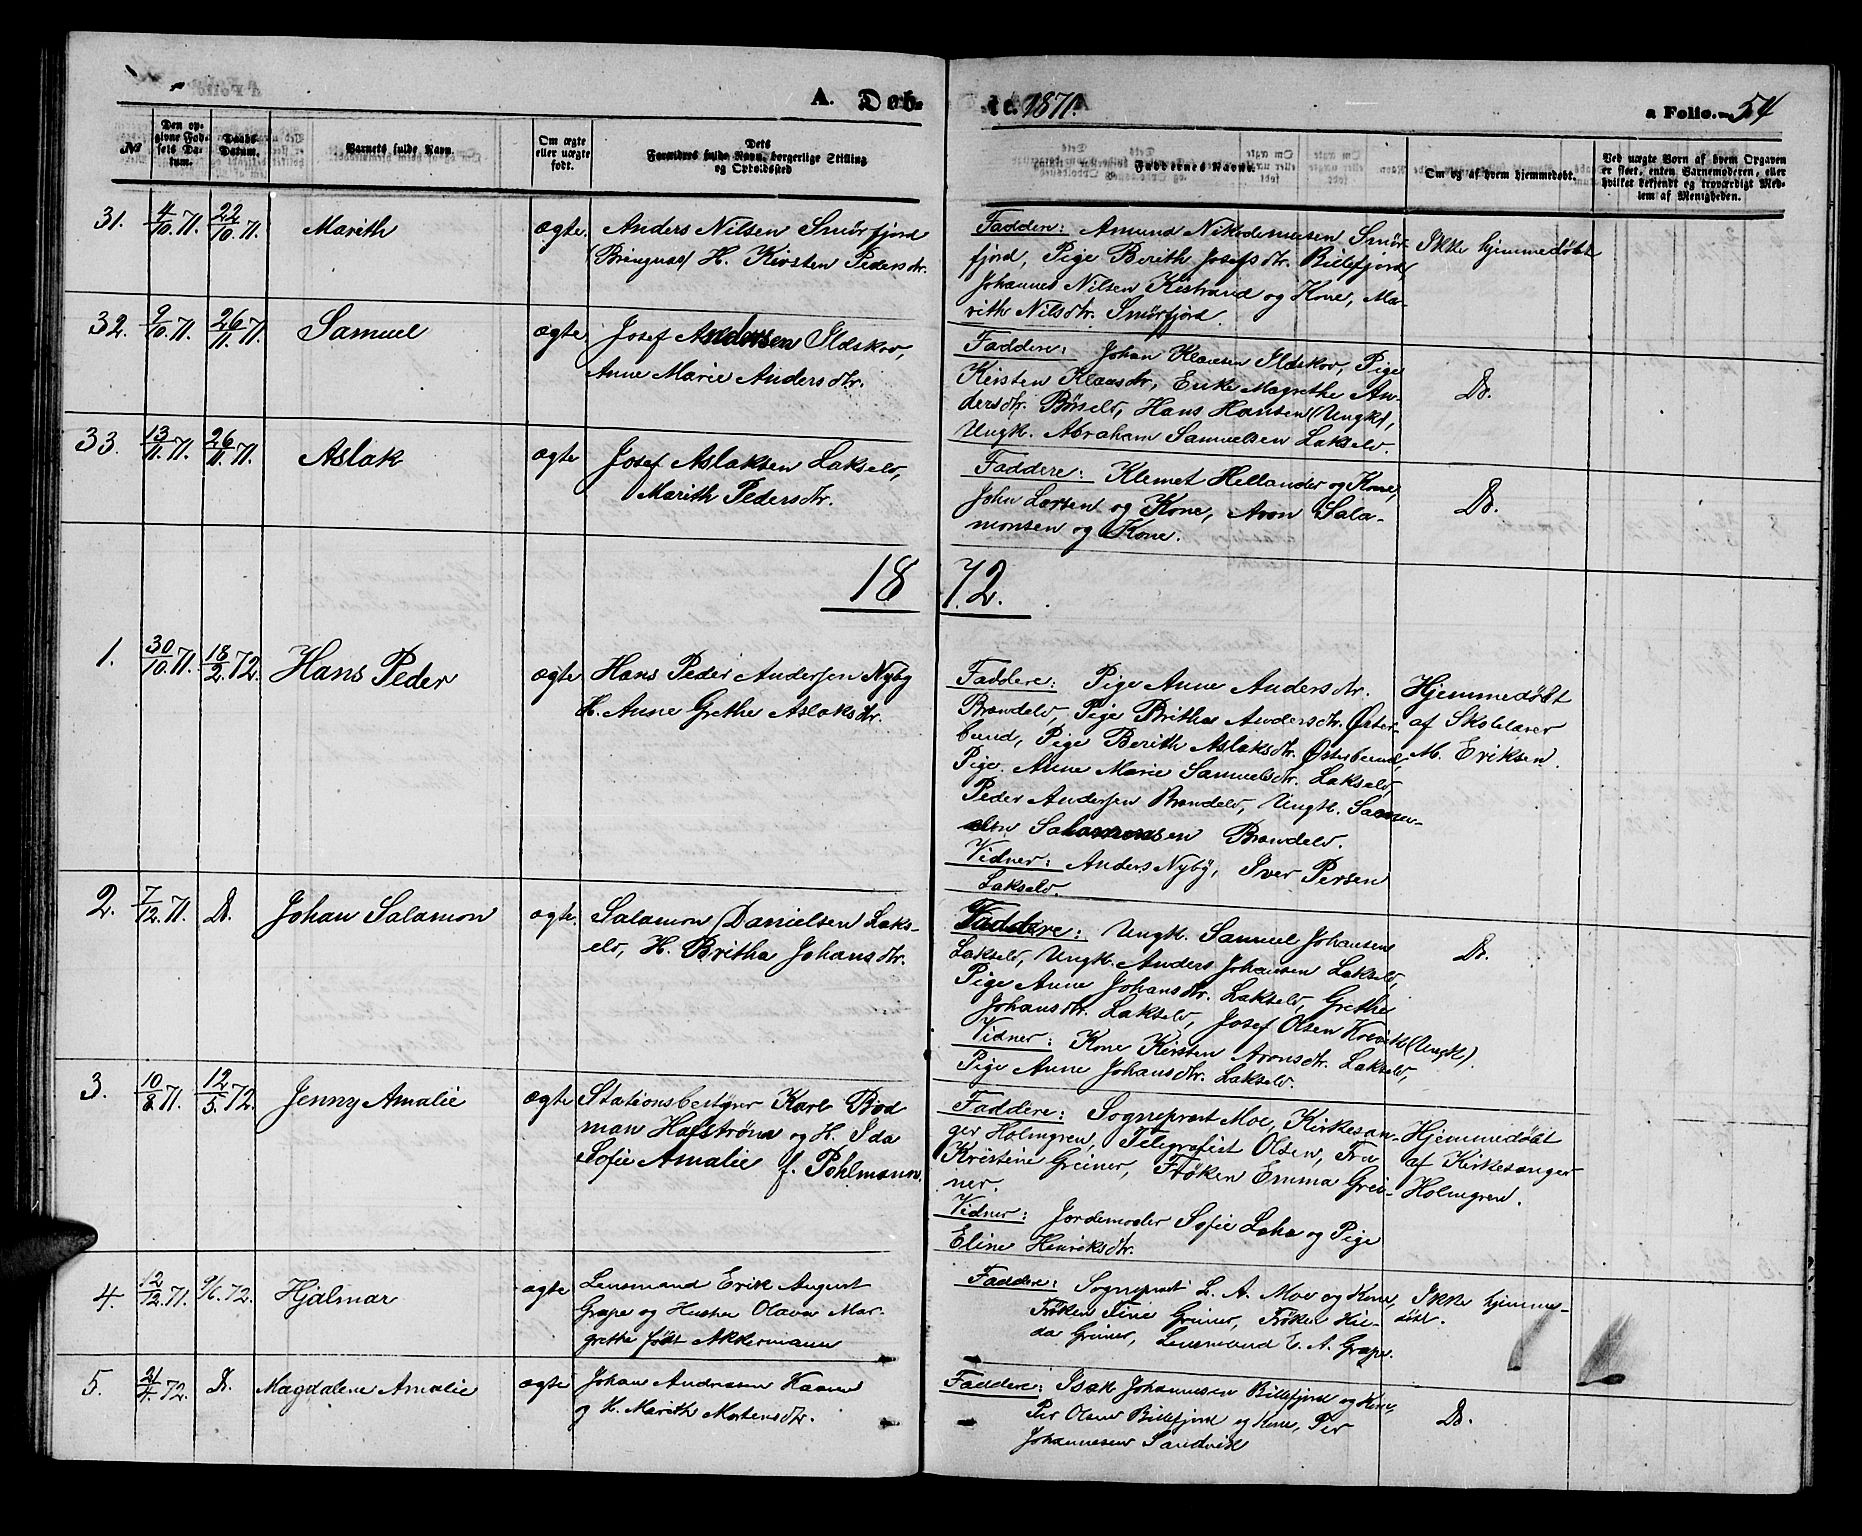 A. Døbte. 1871. a Folio. 54
№
Den opgivne Fødsels Datum.
Daabs Datum.
Barnets fulde Navn.
Om ægte eller uægte født.
Dets Forældres fulde Navn, borgerlige Stilling og Opholdssted
Faddernes Navne.
Om og af hvem hjemmedøbt.
Ved uægte Børn af hvem Opgaven er skeet, enten Barnemoderen, eller hvilket bekjendt og troværdigt Medlem af Menigheden.
31. 4/10 71. 22/10 71. Marith ægte. Anders Nilsen Smörfjord
(Bringnæs) H. Kirsten Pedersdtr.
Faddere: Amund Nikodemusen Smör-
fjord, Pige Berith Josefsdtr. Billefjord,
Johannes Nilsen Kistrand og Kone, Ma-
rith Nilsdtr. Smörfjord.
Ikke hjemmedöbt
32. 9/10 71. 26/11 71. Samuel ægte Josef Andersen Ildskov,
Anne Marie Andersdtr.
Faddere: Johan Klausen Ildskov, Pige
Kirsten Klausdtr, Erike Magrethe An-
dersdtr. Börselv, Hans Hansen (Ungk),
Ungk. Abraham Samuelsen Lakselv.
Do.
33. 13/11 71. 26/11 71. Aslak ægte Josef Aslaksen Lakselv,
Marith Pedersdtr.
Faddere: Klemet Hellander og Kone,
John Larsen og Kone, Aron Sala-
monsen og Kone.
Do.
1872.
1. 30/10 71. 18/2 72. Hans Peder ægte Hans Peder Andersen Nyby
H. Anne Grethe Aslaksdtr.
Faddere: Pige Anne Andersdtr.
Brændelv, Pige Britha Andersdtr. Øster-
bund, Pige Berith Aslaksdtr. Østerbund,
Pige Anne Marie Samuelsdtr. Lakselv,
Peder Andersen Brændelv, Ungk.
Salamonsen Brændelv.
Vidner: Anders Nyby, Iver Persen
Lakselv.
Hjemmedöbt
af Skolelærer
M. Eriksen.
2. 7/12 71. Do. Johan Salamon ægte. Salamon Danielsen Laks-
elv, H. Britha Johansdtr.
Faddere: Ungk. Samuel Johansen
Lakselv, Ungk. Anders Johansen Lakselv,
Pige Anne Johansdtr. Lakselv, Grethe
Johansdtr. Lakselv, Josef Olsen (Ungk).
Vidner: Kone Kirsten Aronsdtr. Lakselv,
Pige Anne Johansdtr. Lakselv.
Do.
3. 10/8 71. 12/5 72. Jenny Amalie ægte Stationsbestyrer Karl Bod
man Hafström og H. Ida
Sofie Amalie f. Pohlmann.
Faddere: Sogneprest Moe, Kirkesan-
ger Holmgren, Telegrafist Olsen, Fru
Kristine Greiner, Frøken Emma Grei-
ner.
Vidner: Jordemoder Sofie Lohe og Pige
Eline Henriksdtr.
Hjemmedöbt
af Kirkesanger
Holmgren.
4. 12/12 71. 9/6 72. Hjalmar ægte Lensmand Erik August
Grape og Hustru Olava Mar-
grethe født Akkermann
Faddere: Sogneprest L. A. Moe og Kone,
Frøken Tine Greiner, Frøken Hil-
da Greiner, Lensmand E. A. Grape.
Ikke hjemme-
döbt.
5. 21/4 72. Do. Magdalene Amalie ægte Johan Andreas Kaaven
og H. Marith Mortensdtr.
Faddere: Isak Johannesen Billefjord og Kone,
Per Olsen Billefjord og Kone, Per
Johannesen Sandvik
Do.